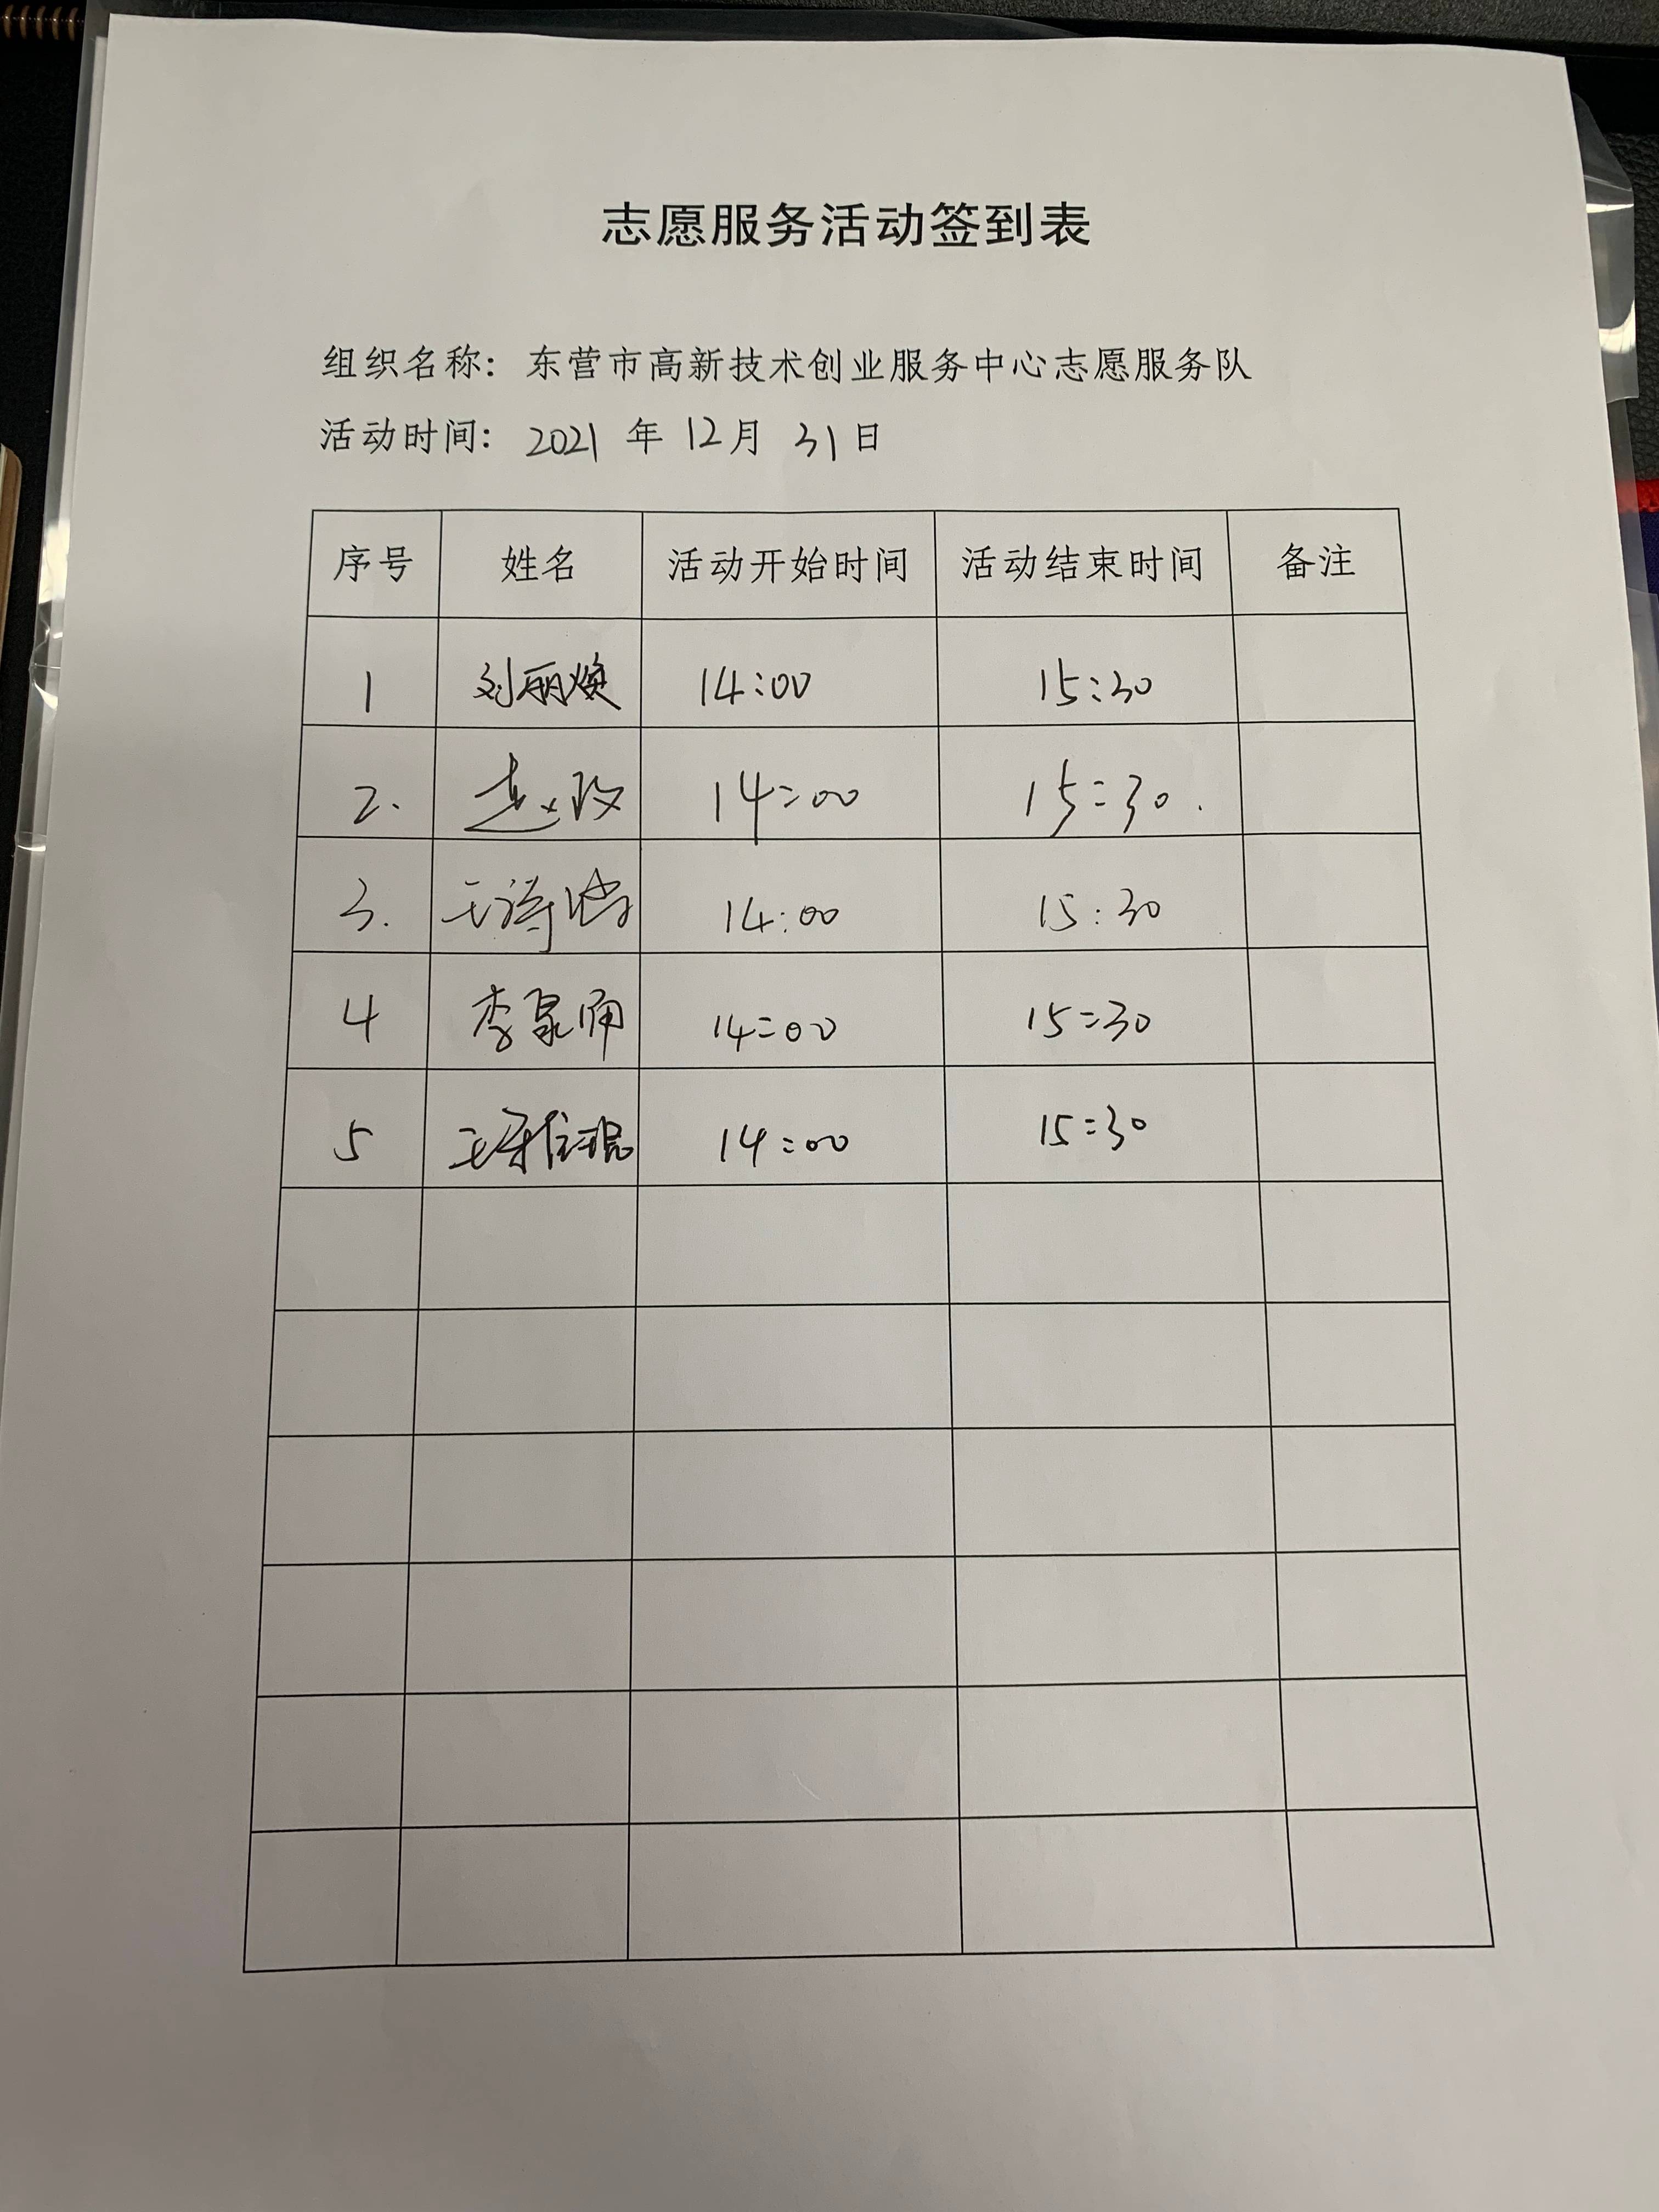 志愿服务活动签到表
组织名称：东营市高新技术创业服务中心志愿服务队
活动时间：2021 年 12月 31日
序号 姓名 活动开始时间 活动结束时间 备注
1 刘丽焕 14:00 15:30
2. 赵 14:00 15:30.
3. 王 14:00 15:30
4 李泉涌 14:00 15:30
5 王 14:00 15:30